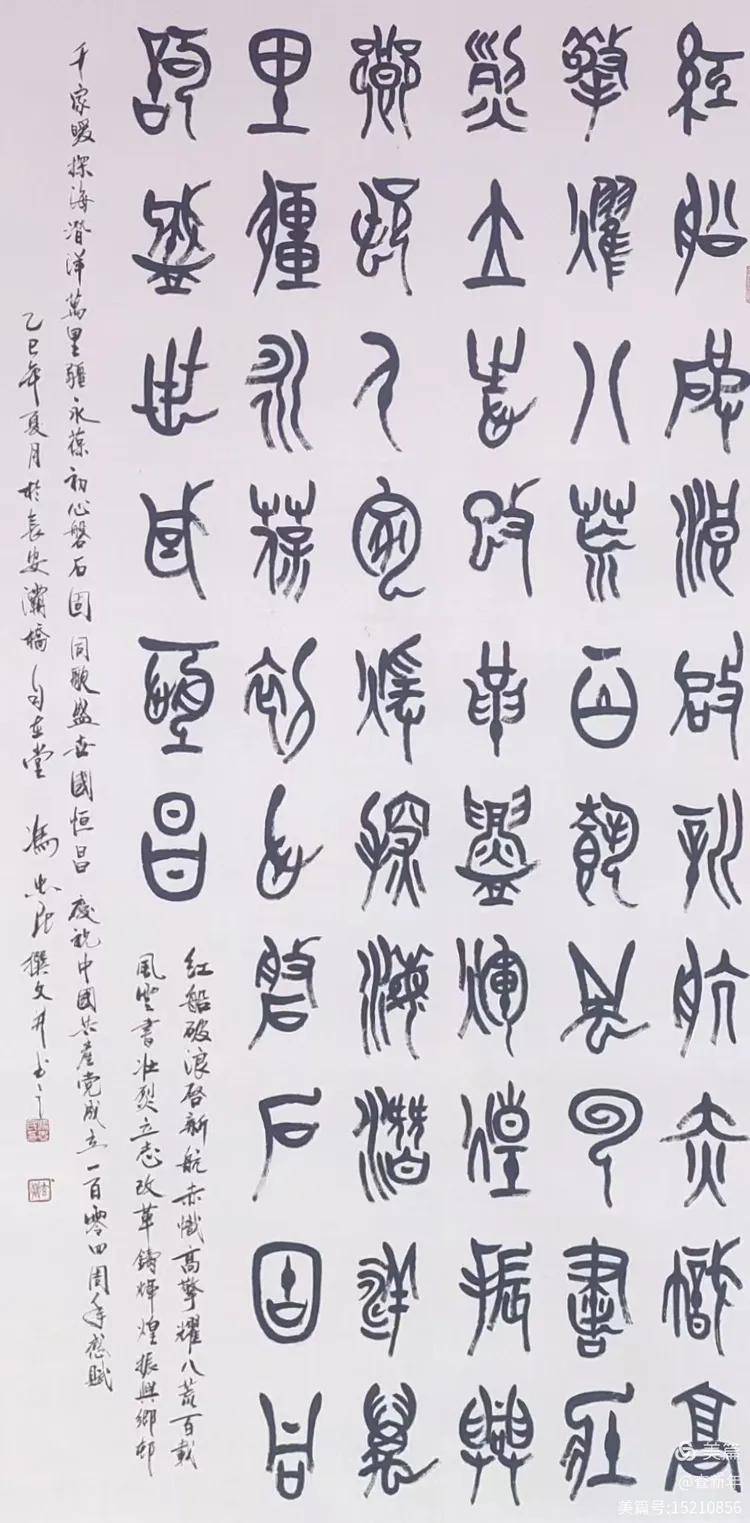 紅船破浪啟新航赤幟高
擎耀八荒百載風雲書壯
烈立志改革鑄輝煌振興
鄉邨千家暖探海潛洋萬
里疆永葆初心磐石固同
謌盛世國恒昌
红船破浪啓新航赤幟高擎耀八荒百載
風雲書壯烈立志改革鑄輝煌振興鄉邨
千家暖探海潛洋萬里疆永葆初心磐石固同歌盛世國恒昌 慶祝中國共產党成立一百零四周年感賦
乙巳年夏月於長安灞橋自在堂 馮忠 撰文并书
美篇
@查新年
美篇号:15210856